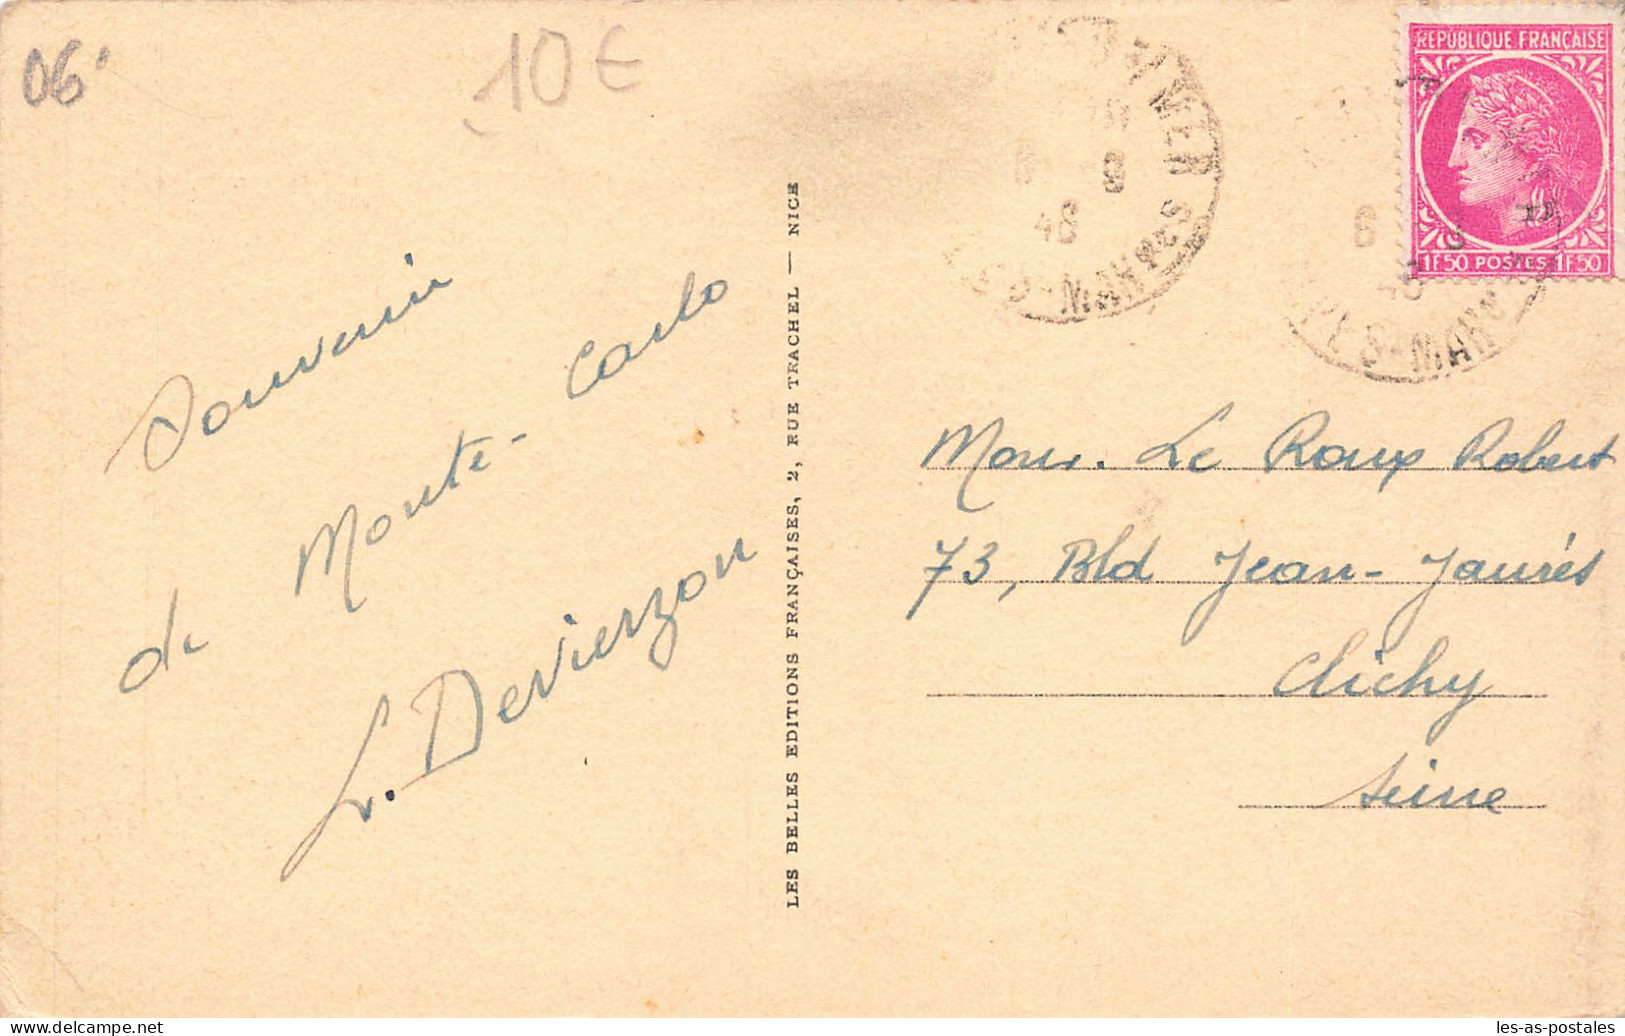 06'
10 €
RÉPUBLIQUE FRANÇAISE
1F50 POSTES 1F50
6 8
46
MARMES
6
46
Souvenir
de Monte-Carlo
L. Devierzon
LES BELLES EDITIONS FRANÇAISES, 2, RUE TRACHEL — NICE
Monr. Le Roux Robert
73, Bld Jean-Jaurés
Clichy
Seine
delcampe.net
les-as-postales